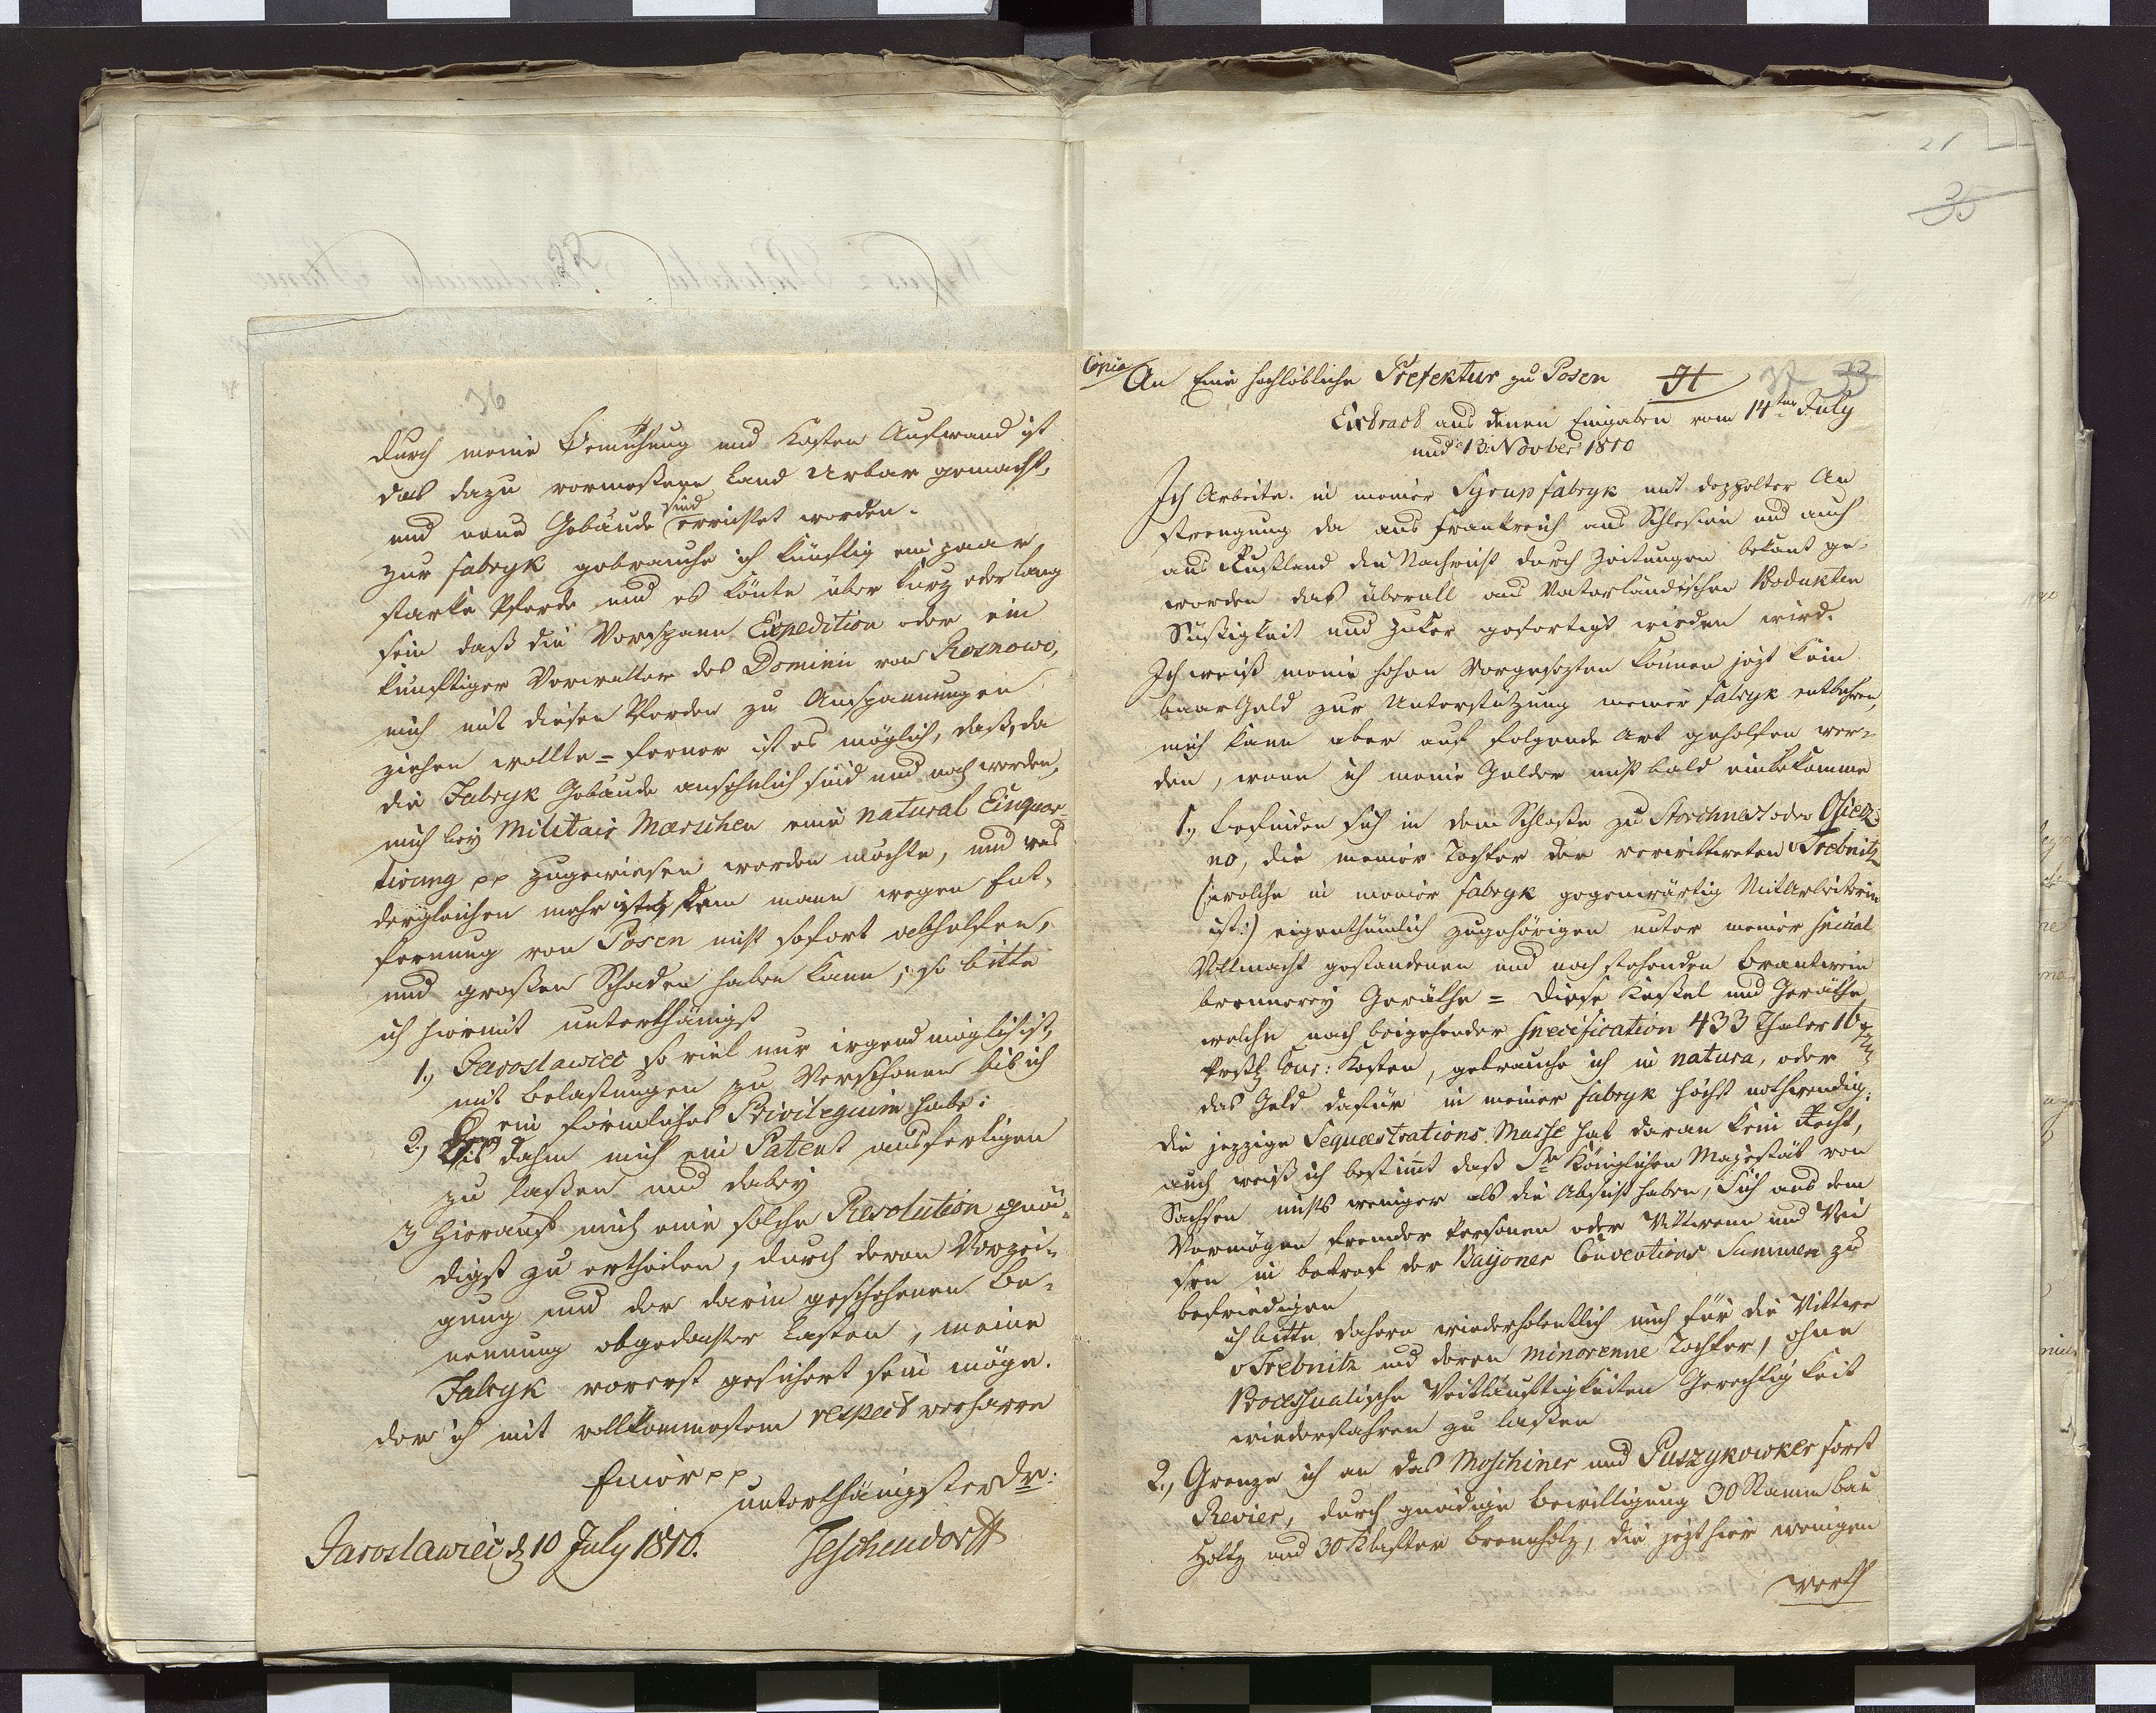 36
durch meine Bemühung und Kosten Aufwand ist
das dazu vermeßene Land Urbar gemacht,
und neue Gebäude sind errichtet worden.
zur Fabryk gebrauche ich künftig ein paar
starke Pferde und es könte über kurz oder lang
sein daß die Vorspann Expedition oder ein
künftiger Verwalter des Dominii von Rosnowo,
mich mit diesen Pferden zu Anspannungen
ziehen wollte = ferner ist es möglich, daß, da
die Fabryk Gebäude ansehnlich sind und noch werden,
mich bey Militair Marschen eine natural Einquar-
tirung pp zugewiesen werden möchte, und was
dergleichen mehr ist, dem mann wegen Ent-
fernung von Posen nicht sofort abhelfen,
und großen Schaden haben kann; so bitte
ich hiermit unterthänigst
1., Jaroslawiec so viel nur irgend möglich ist,
mit belastungen zu Verschonen bis ich
ein förmliches Privilegium habe:
2., Bis dahin mich ein Patent ausfertigen
zu laßen und dabey
3 Hierauf mich eine solche Resolution gnä-
digst zu ertheilen, durch deren Vorzei-
gung und der darin geschehenen Be-
nennung obgedachter Lasten, meine
Fabryk vorerst gesichert sein möge.
der ich mit vollkommestem respect verharre
Einer pp
unterthänigster Dr:
Jaroslawiec d 10 July 1810. Teschendorff
21
35
Copia An Eine hochlöbliche Prefektur zu Posen H 37 33
Extract aus denen Eingaben vom 14ten July
und 13. Novber 1810
Ich Arbeite in meiner Syrup fabryk mit doppelter An
strengung da aus Frankreich aus Schlesien und auch
aus Rußland die Nachricht durch Zeitungen bekant ge-
worden das überall aus Vaterländischen Produkten
Süßigkeit und Zuker gefertigt werden wird.
Ich weiß meine hohen Vorgesezten können jezt kein
baar Geld zur Unterstüzung meiner fabryk entbehren,
mich kann aber auf folgende Art geholfen wer-
den, wenn ich meine Gelder nicht bald einbekomme
1., befinden sich in dem Schloße zu Storchnest oder Osiecz-
no, die meiner Tochter der verwittweten v Trebnitz
(:welche in meiner fabryk gegenwärtig MitArbeiterin
ist:) eigenthümlich zugehörigen unter meiner Special
Vollmacht gestandenen und noch stehenden Brantwein
brennerey Geräthe = Diese Keßel und Geräthe
welche nach beigehender Specification 433 Thaler 16
Preßl Cour: kosten, gebrauche ich in natura, oder
das Geld dafür in meiner fabryk höchst nothwendig:
die jezzige Sequestrations Masse hat daran kein Recht,
auch weiß ich bestimt daß Sr Königlichen Majestät von
Sachsen nichts weniger als die Absicht haben, Sich aus dem
Vermögen fremder Personen oder Wittwen und Wai
sen in betref der Bayoner Conventions Summen zu
befriedigen
ich bitte dahero wiederholentlich mich für die Wittwe
v Trebnitz und deren minorenne Tochter, ohne
Processualische Weitläuftigkeiten Gerechtigkeit
wiederfahren zu laßen
2., Grenze ich an das Moschiner und Puszykowker forst
Revier, durch gnädige bewilligung 30 Stamm bau
Holtz und 30 Klafter brennholz, die jezt hier wenigen
werth